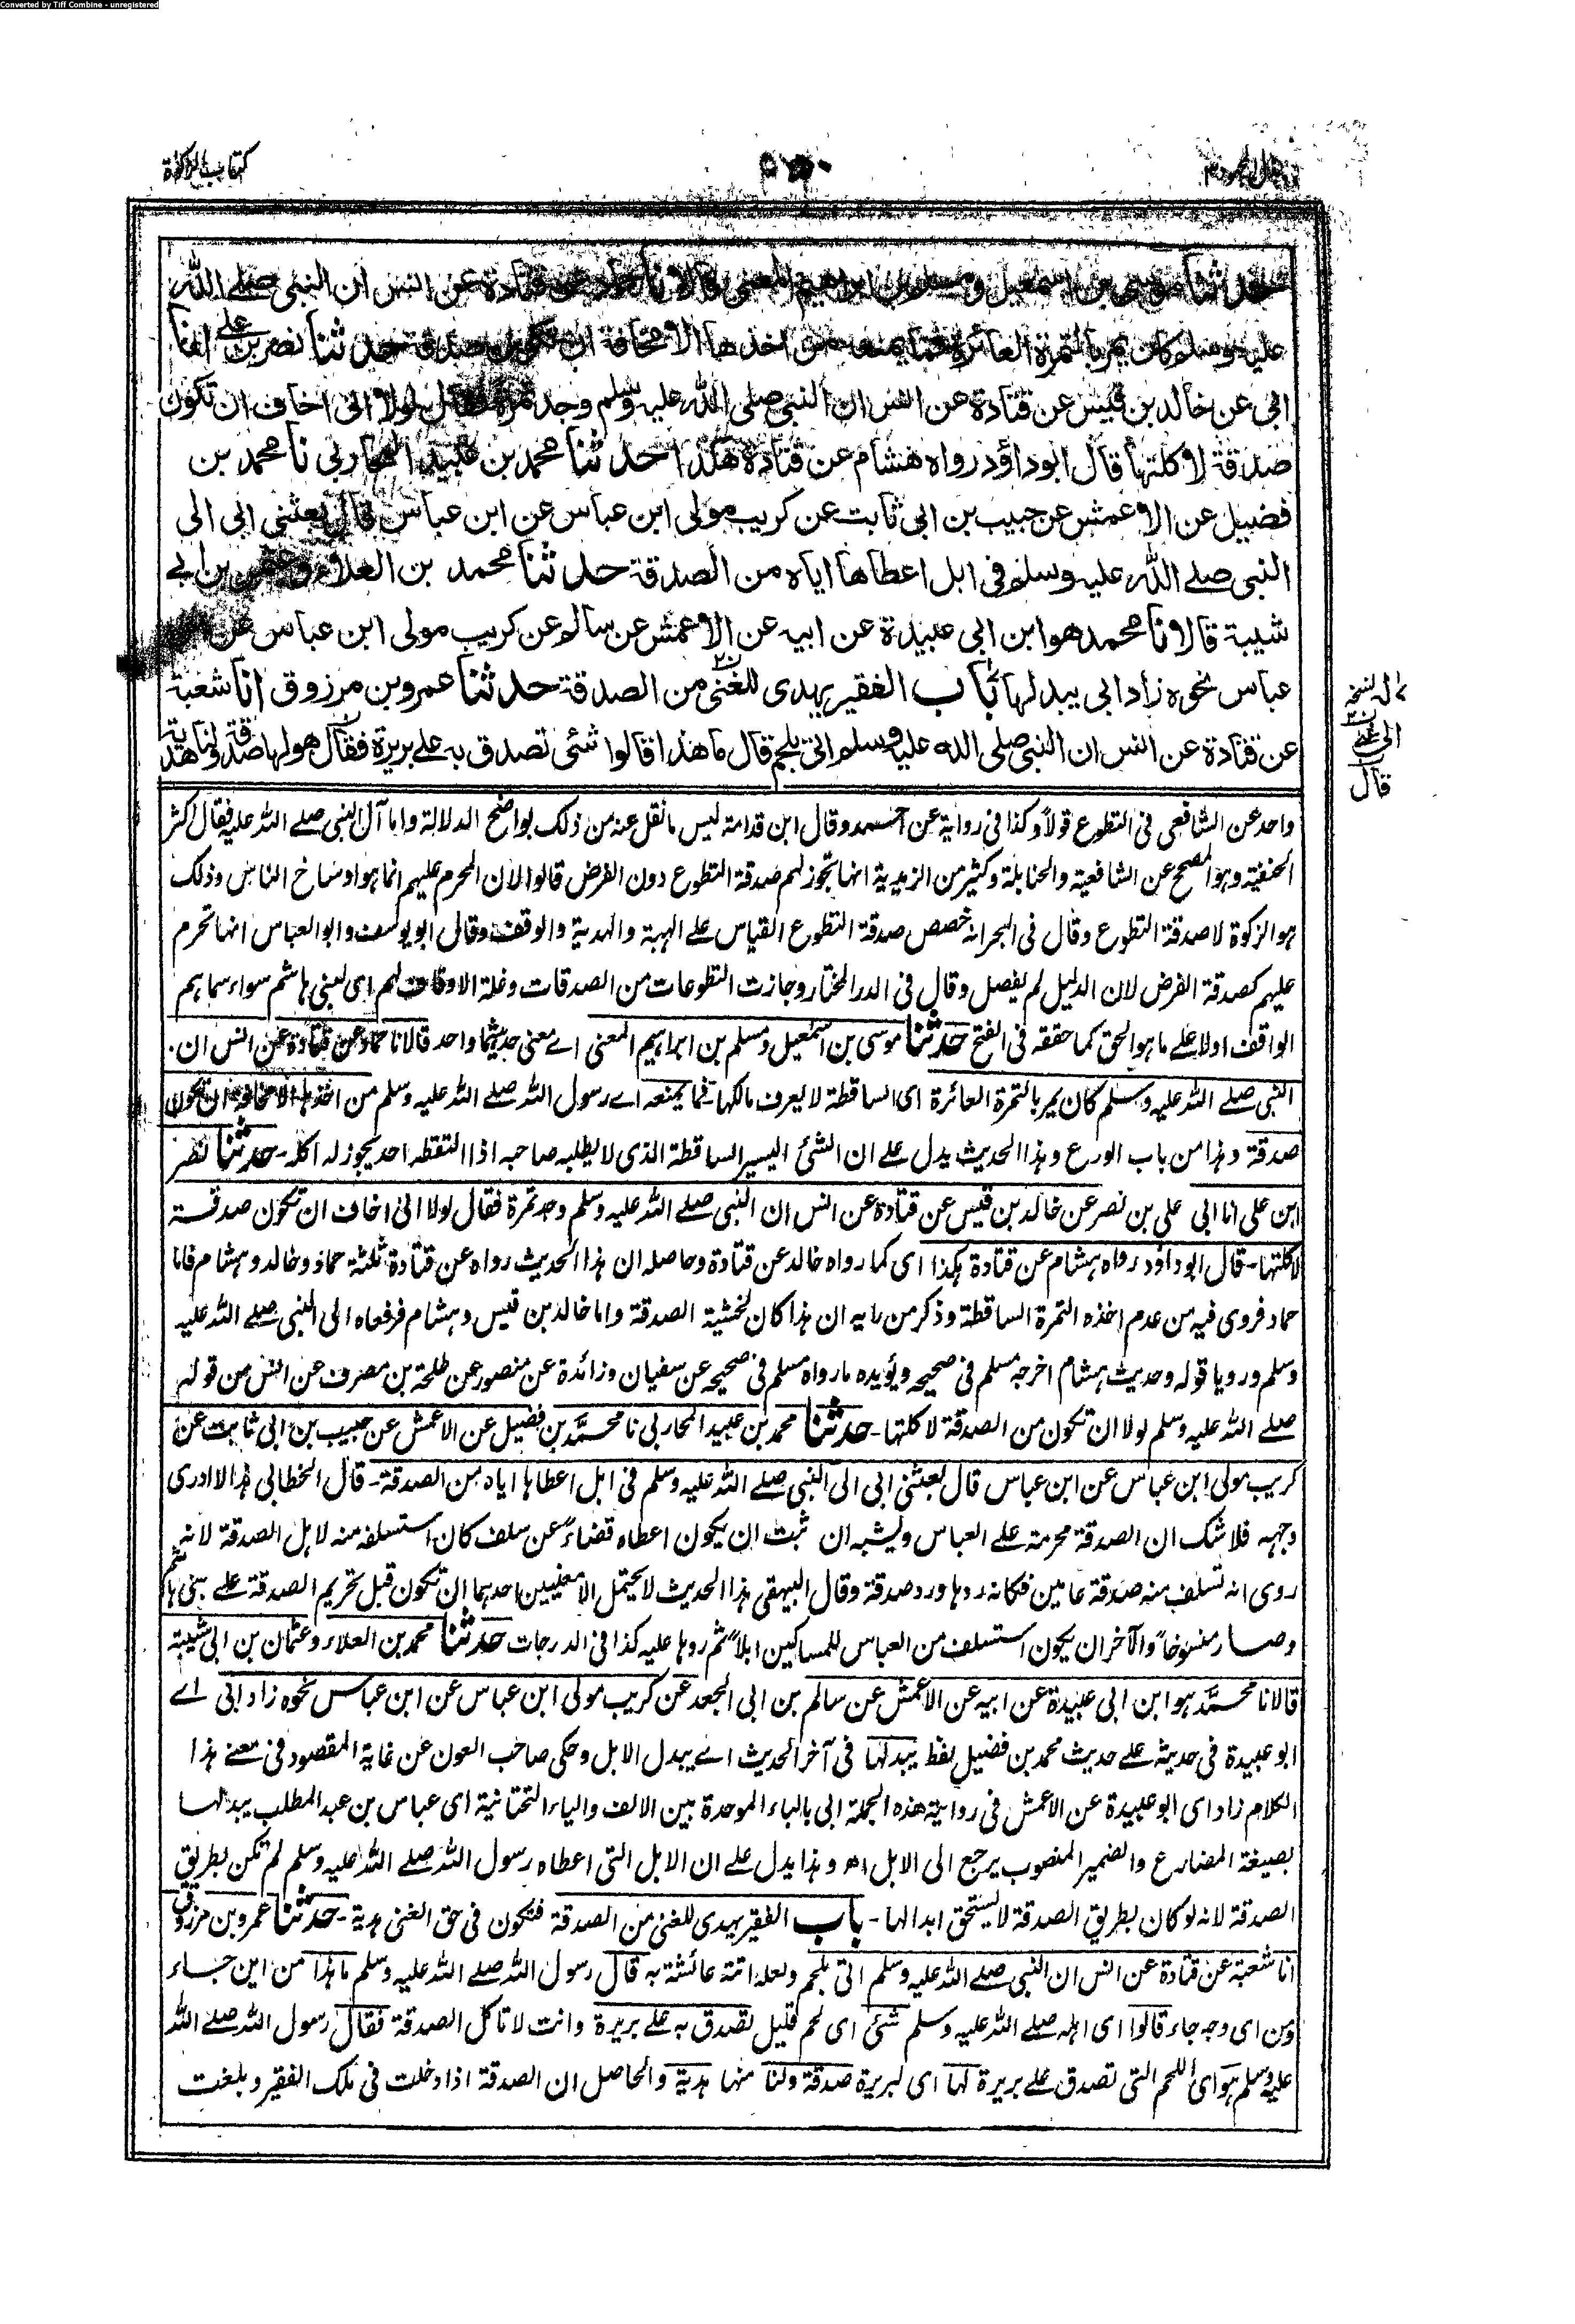 Converted by Tiff Combine - unregistered
كتاب الزكوة
حدثنا موسى بن اسمعيل ومسلم بن ابراهيم المعنى قالا نا حماد عن قتادة عن انس ان النبى صلے الله
عليه وسلم كان يمر بالتمرة العائرة فما يمنعه من اخذها الا مخافة ان تكون صدقة حدثنا نصر بن علے انا
ابى عن خالد بن قيس عن قتادة عن انس ان النبى صلى الله عليه وسلم وجد تمرة فقال لولا انى اخاف ان تكون
صدقة لاكلتها قال ابو داؤد رواه هشام عن قتادة هكذا حدثنا محمد بن عبيد المحاربى نا محمد بن
فضيل عن الاعمش عن حبيب بن ابى ثابت عن كريب مولى ابن عباس عن ابن عباس قال بعثنى ابى الى
النبى صلے الله عليه وسلم فى ابل اعطاها اياه من الصدقة حدثنا محمد بن العلاء وعثمن بن ابے
شيبة قالا نا محمد هو ابن ابى عبيدة عن ابيه عن الاعمش عن سالم عن كريب مولى ابن عباس عن
عباس نحوه زاد ابى يبدلها باب الفقير يهدى للغنى من الصدقة حدثنا عمرو بن مرزوق انا شعبة
عن قتادة عن انس ان النبى صلى الله عليه وسلم اتى بلحم قال ما هذا قالوا شئى تصدق به علے بريرة فقال هو لها صدقة ولنا هدية
قال
واحد عن الشافعى فى التطوع قولاً وكذا فى رواية عن احمد وقال ابن قدامة ليس ما نقل عنه من ذلك بواضح الدلالة واما آل النبى صلے الله عليه فقال اكثر
الحنفية وهو المصحح عن الشافعية والحنابلة وكثير من الزيدية انها تجوز لهم صدقة التطوع دون الفرض قالوا لان المحرم عليهم انما هو اوساخ الناس وذلك
هو الزكوة لا صدقة التطوع وقال فى البحر انه خصص صدقة التطوع القياس علے الهبة والهدية والوقف وقال ابو يوسف وابو العباس انها تحرم
عليهم كصدقة الفرض لان الدليل لم يفصل وقال فى الدر المختار وجازت التطوعات من الصدقات وغلة الاوقاف لهم اى لبنى هاشم سواء سماهم
الواقف اولا علے ما هو الحق كما حققه فى الفتح حدثنا موسى بن اسمعيل ومسلم بن ابراهيم المعنى اے معنى حديثهما واحد قالا نا حماد عن قتادة عن انس ان
النبى صلے الله عليه وسلم كان يمر بالتمرة العائرة اى الساقطة لا يعرف مالكها فما يمنعه اے رسول الله صلے الله عليه وسلم من اخذها الا مخافة ان تكون
صدقة وهذا من باب الورع وهذا الحديث يدل علے ان الشئ اليسير الساقطة الذى لا يطلبه صاحبه اذا التقطه احد يجوز له اكله - حدثنا نصر
ابن على انا ابى على بن نصر عن خالد بن قيس عن قتادة عن انس ان النبى صلے الله عليه وسلم وجد تمرة فقال لولا انى اخاف ان تكون صدقة
لاكلتها - قال ابو داؤد رواه هشام عن قتادة هكذا اى كما رواه خالد عن قتادة وحاصله ان هذا الحديث رواه عن قتادة ثلثة حماد وخالد وهشام فاما
حماد فروى فيه من عدم اخذه التمرة الساقطة وذكر من رايه ان هذا كان لخشية الصدقة واما خالد بن قيس وهشام فرفعاه الى النبى صلے الله عليه
وسلم ورويا قوله وحديث هشام اخرجه مسلم فى صحيحه ويؤيده ما رواه مسلم فى صحيحه عن سفيان وزائدة عن منصور عن طلحة بن مصرف عن انس من قوله
صلے الله عليه وسلم لولا ان تكون من الصدقة لاكلتها - حدثنا محمد بن عبيد المحاربى نا محمد بن فضيل عن الاعمش عن حبيب بن ابى ثابت عن
كريب مولى ابن عباس عن ابن عباس قال بعثنى ابى الى النبى صلے الله عليه وسلم فى ابل اعطاها اياه من الصدقة - قال الخطابى هذا لا ادرى
وجهه فلا شك ان الصدقة محرمة علے العباس ويشبه ان ثبت ان يكون اعطاه قضاءً عن سلف كان استسلفه منه لاهل الصدقة لانه
روى انه تسلف منه صدقة عامين فكانه ردها ورد صدقة وقال البيهقى هذا الحديث لا يحتمل الا معنيين احدهما ان تكون قبل تحريم الصدقة علے بنى هاشم
وصار منسوخاً والآخر ان يكون استسلف من العباس للمساكين ابلاً ثم ردها عليه كذا فى الدرجات حدثنا محمد بن العلاء وعثمان بن ابى شيبة
قالا نا محمد هو ابن ابى عبيدة عن ابيه عن الاعمش عن سالم بن ابى الجعد عن كريب مولى ابن عباس عن ابن عباس نحوه زاد ابى اے
ابو عبيدة فى حديثه علے حديث محمد بن فضيل لفظ يبدلها فى آخر الحديث اے يبدل الابل وحكى صاحب العون عن غاية المقصود فى معنے هذا
الكلام زاد اى ابو عبيدة عن الاعمش فى رواية هذه الجملة ابى بالباء الموحدة بين الالف والياء التحتانية اى عباس بن عبد المطلب يبدلها
بصيغة المضارع والضمير المنصوب يرجع الى الابل اھ وهذا يدل علے ان الابل التى اعطاه رسول الله صلے الله عليه وسلم لم تكن بطريق
الصدقة لانه لو كان بطريق الصدقة لا يستحق ابدالها - باب الفقير يهدى للغنى من الصدقة فتكون فى حق الغنى هدية - حدثنا عمرو بن مرزوق
انا شعبة عن قتادة عن انس ان النبى صلے الله عليه وسلم اتى بلحم ولعله اتته عائشة به قال رسول الله صلے الله عليه وسلم ما هذا من اين جاء
ومن اى وجه جاء قالوا اى اهله صلے الله عليه وسلم شئ اى لحم قليل تصدق به علے بريرة وانت لا تاكل الصدقة فقال رسول الله صلے الله
عليه وسلم هو اى اللحم التى تصدق علے بريرة لها اى لبريرة صدقة ولنا منها هدية والحاصل ان الصدقة اذا دخلت فى ملك الفقير وبلغت